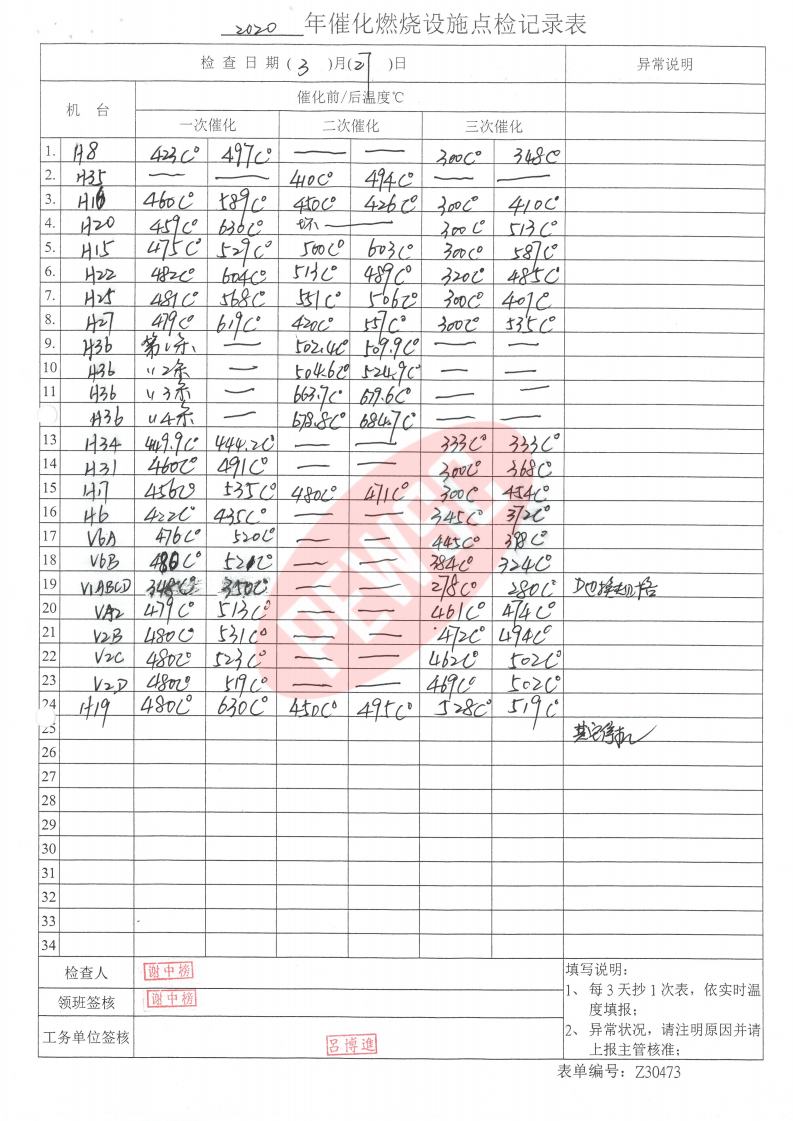 2020 年催化燃烧设施点检记录表
检查日期(3)月(27)日 异常说明
机台 催化前/后温度℃
一次催化 二次催化 三次催化
1. H8 423C° 497C° — — 300C° 348C°
2. H35 — — 410C° 494C° — —
3. H16 460C° 589C° 450C° 426C° 300C° 410C°
4. H20 459C° 630C° 坏 — 300C° 513C°
5. H15 475C° 529C° 500C° 603C° 300C° 587C°
6. H22 482C° 604C° 513C° 489C° 320C° 485C°
7. H25 481C° 568C° 551C° 506C° 300C° 407C°
8. H27 479C° 619C° 420C° 557C° 300C° 535C°
9. H36 第1条 — 502.4C° 509.9C° — —
10 H36 〃2条 — 504.6C° 524.9C° — —
11 H36 〃3条 — 663.7C° 679.6C° — —
H36 〃4条 — 678.8C° 684.7C° — —
13 H34 449.9C° 444.2C° — — 333C° 333C°
14 H31 460C° 491C° — — 300C° 368C°
15 H17 456C° 535C° 480C° 471C° 300C° 454C°
16 H6 422C° 435C° — — 345C° 372C°
17 V6A 476C° 520C° — — 445C° 398C°
18 V6B 480C° 521C° — — 384C° 324C°
19 V1ABCD 348C° 350C° — — 278C° 280C°
20 VA2 479C° 513C° — — 461C° 474C°
21 V2B 480C° 531C° — — 472C° 494C°
22 V2C 480C° 523C° — — 462C° 502C°
23 V2D 480C° 519C° — — 469C° 502C°
24 H19 480C° 630C° 450C° 495C° 528C° 519C°
25 其它停机
26
27
28
29
30
31
32
33
34
PEWSC
检查人 谢中榜
领班签核 谢中榜
工务单位签核 吕博進
填写说明:
1、每3天抄1次表,依实时温
度填报;
2、异常状况,请注明原因并请
上报主管核准;
表单编号:Z30473